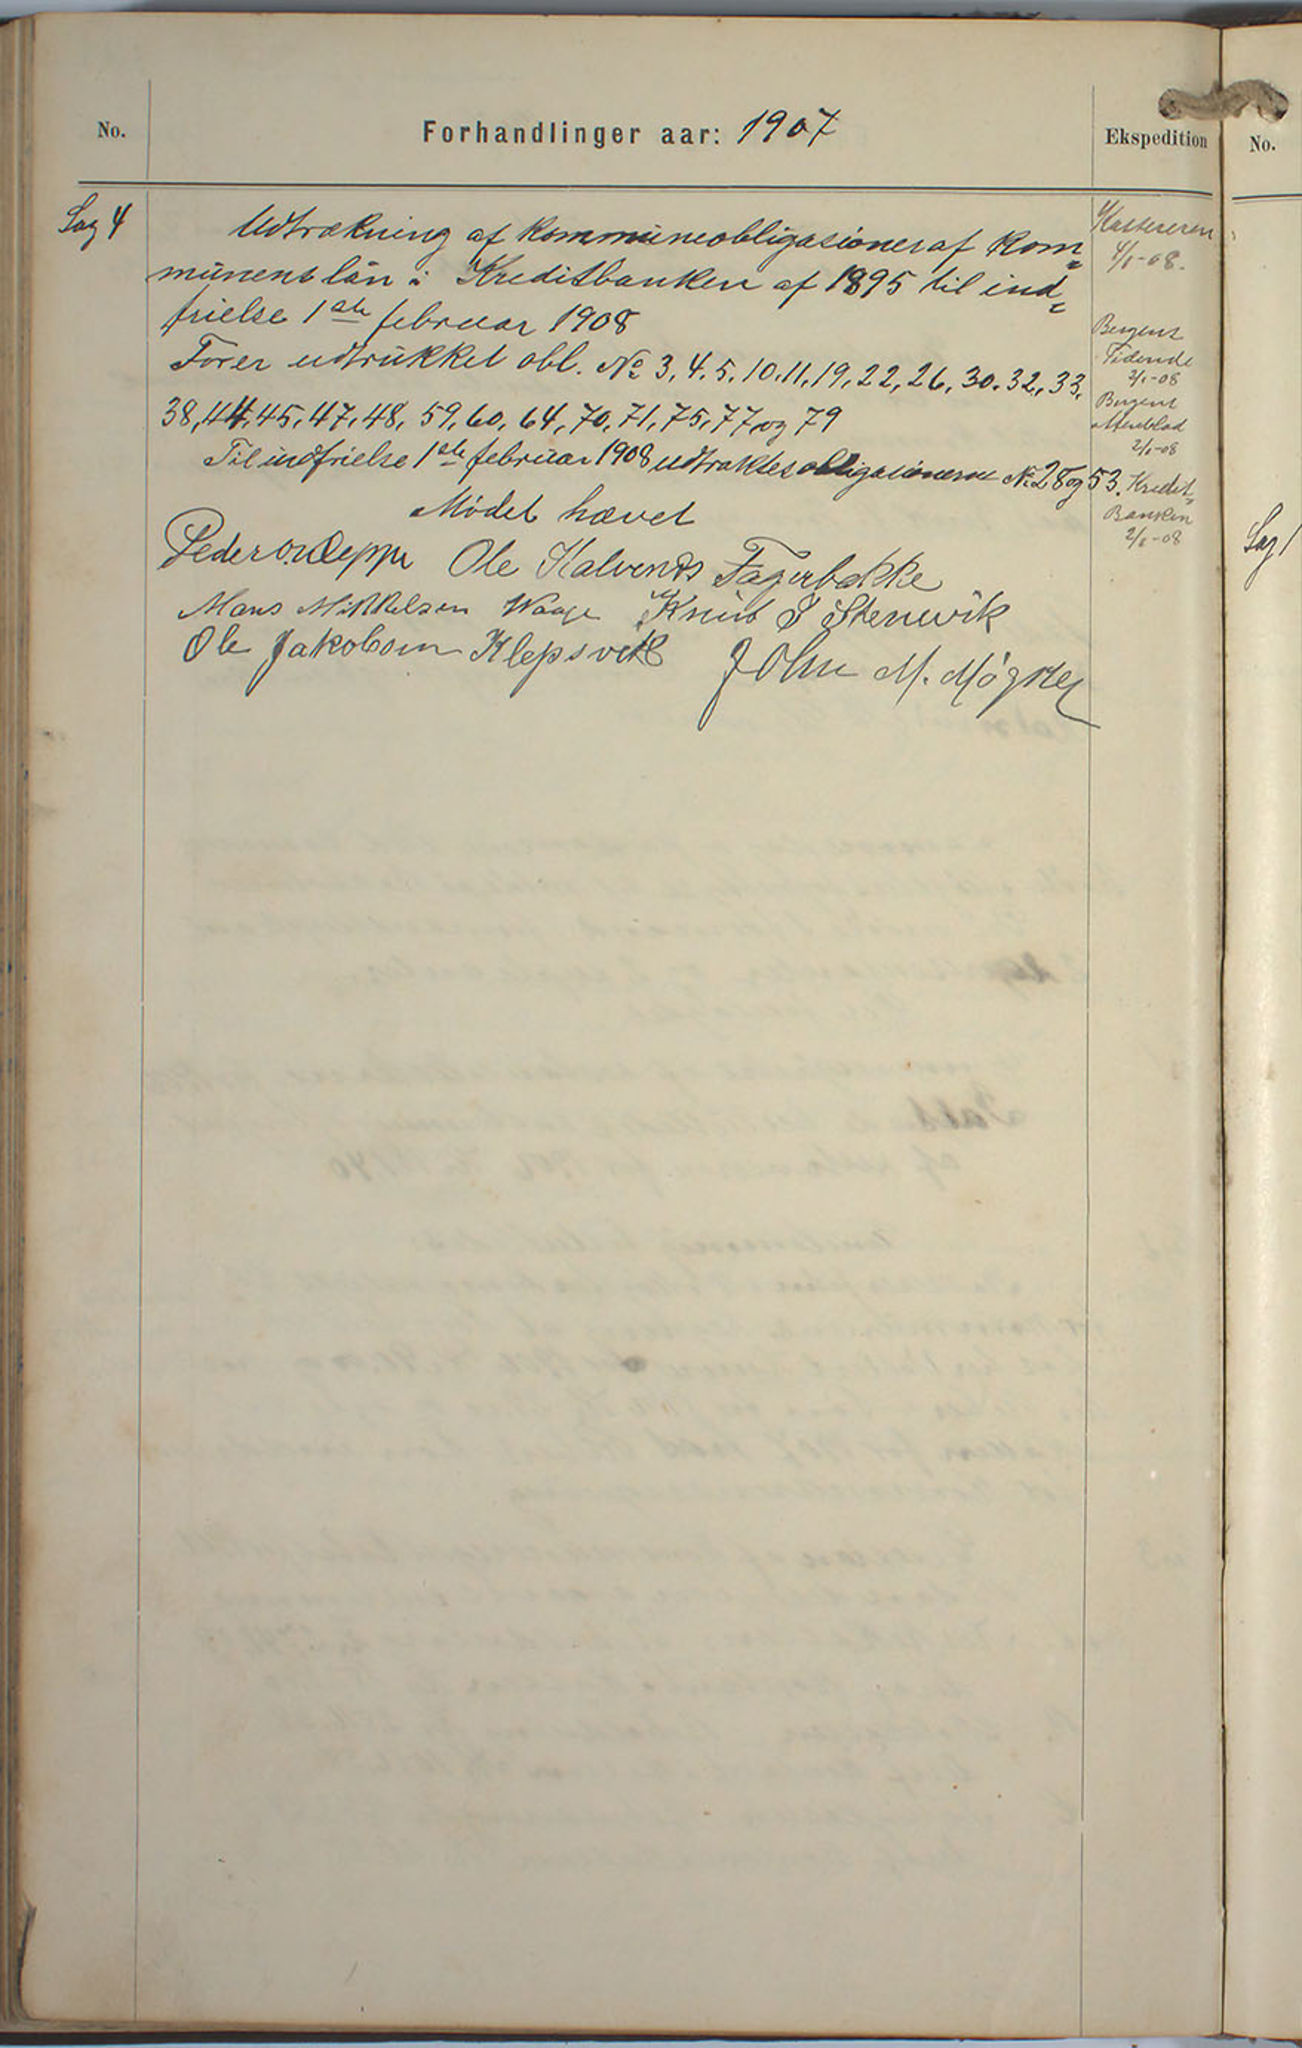 No.
Forhandlinger aar: 1907
Ekspedition
No.
Sag 4
Udtrækning af kommuneobligasioner af kom=
munens lån i Kreditbanken af 1895 til ind=
frielse 1ste februar 1908
Før er udtrukket obl. No 3, 4, 5, 10, 11, 19, 22, 26, 30, 32, 33,
38, 44, 45, 47, 48, 59, 60, 64, 70, 71, 75, 77 og 79
Til indfrielse 1ste februar 1908 udtraktes obligasionerne No 28 og 53.
Mødet hævet
Peder O. Ole Kalvenes Fagerbakke
Mons Mikkelsen Waage Knut J Stenevik
Ole Jakobsen Klepsvik
John M. Møgster
Kassereren
4/1-08.
Bergens
Tidende
2/1-08
Bergens
Aftenblad
2/1-08
Kredit=
Banken
2/1-08
Sag 1